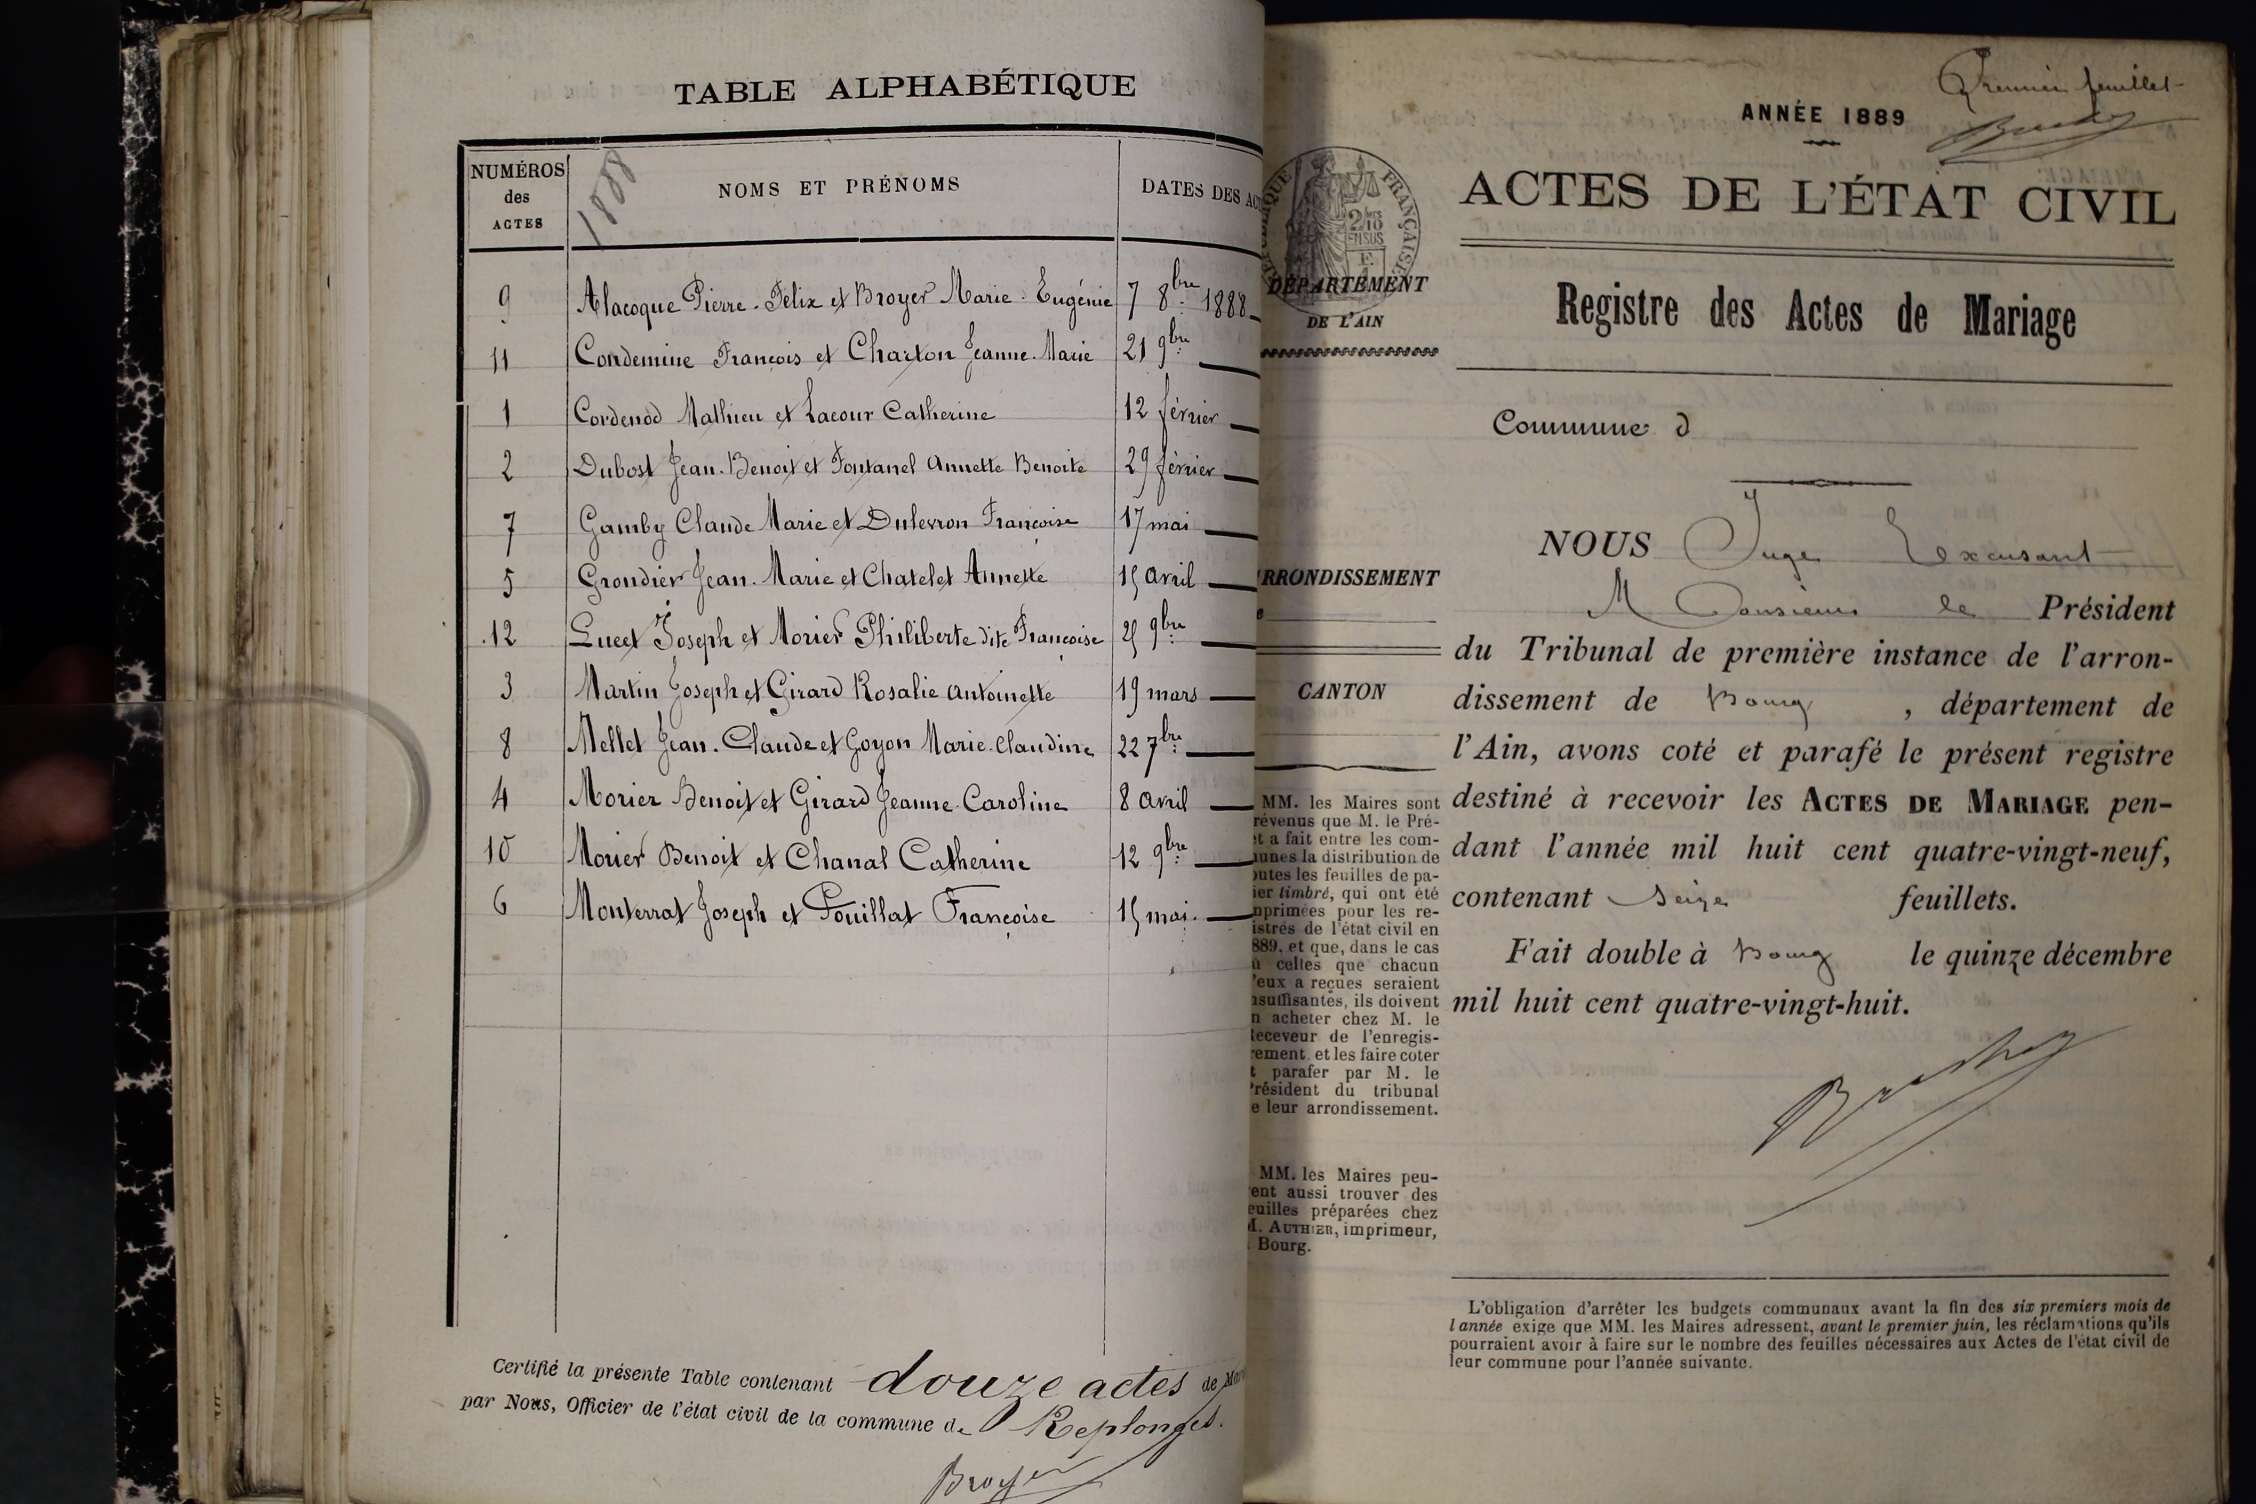 TABLE ALPHABÉTIQUE
NUMÉROS des ACTES
1888
NOMS ET PRÉNOMS
DATES DES AC
9 Alacoque Pierre-Félix et Broyer Marie-Eugénie 7 8bre 1888
11 Condemine François et Charton Jeanne-Marie 21 9bre
1 Cordenod Mathieu et Lacour Catherine 12 février
2 Dubost Jean-Benoit et Fontanel Annette Benoite 29 février
7 Gamby Claude Marie et Dulevron Françoise 17 mai
5 Grondier Jean-Marie et Chatelet Annette 15 avril
12 Lucet Joseph et Morier Philiberte dite Françoise 25 9bre
3 Martin Joseph et Girard Rosalie Antoinette 19 mars
8 Mellet Jean-Claude et Goyon Marie-Claudine 22 7bre
4 Morier Benoit et Girard Jeanne-Caroline 8 avril
10 Morier Benoit et Chanal Catherine 12 9bre
6 Monterrat Joseph et Pouillat Françoise 15 mai
Certifié la présente Table contenant douze actes de Mar
par Nous, Officier de l'état civil de la commune de Replonges.
Broyer
Premier feuillet
ANNÉE 1889
ACTES DE L'ÉTAT CIVIL
RÉPUBLIQUE FRANÇAISE
DÉPARTEMENT
DE L'AIN
Registre des Actes de Mariage
Commune d
NOUS Juge Excusant
Monsieur le Président
du Tribunal de première instance de l'arron-
dissement de Bourg, département de
l'Ain, avons coté et parafé le présent registre
destiné à recevoir les ACTES DE MARIAGE pen-
dant l'année mil huit cent quatre-vingt-neuf,
contenant seize feuillets.
Fait double à Bourg le quinze décembre
mil huit cent quatre-vingt-huit.
RRONDISSEMENT
CANTON
MM. les Maires sont
révenus que M. le Pré-
et a fait entre les com-
unes la distribution de
outes les feuilles de pa-
ier timbré, qui ont été
mprimées pour les re-
istres de l'état civil en
889, et que, dans le cas
ù celles que chacun
'eux a reçues seraient
nsuffisantes, ils doivent
n acheter chez M. le
eceveur de l'enregis-
rement, et les faire coter
t parafer par M. le
résident du tribunal
e leur arrondissement.
MM. les Maires peu-
ent aussi trouver des
euilles préparées chez
M. AUTHIER, imprimeur,
Bourg.
L'obligation d'arrêter les budgets communaux avant la fin des six premiers mois de
l'année exige que MM. les Maires adressent, avant le premier juin, les réclamations qu'ils
pourraient avoir à faire sur le nombre des feuilles nécessaires aux Actes de l'état civil de
leur commune pour l'année suivante.